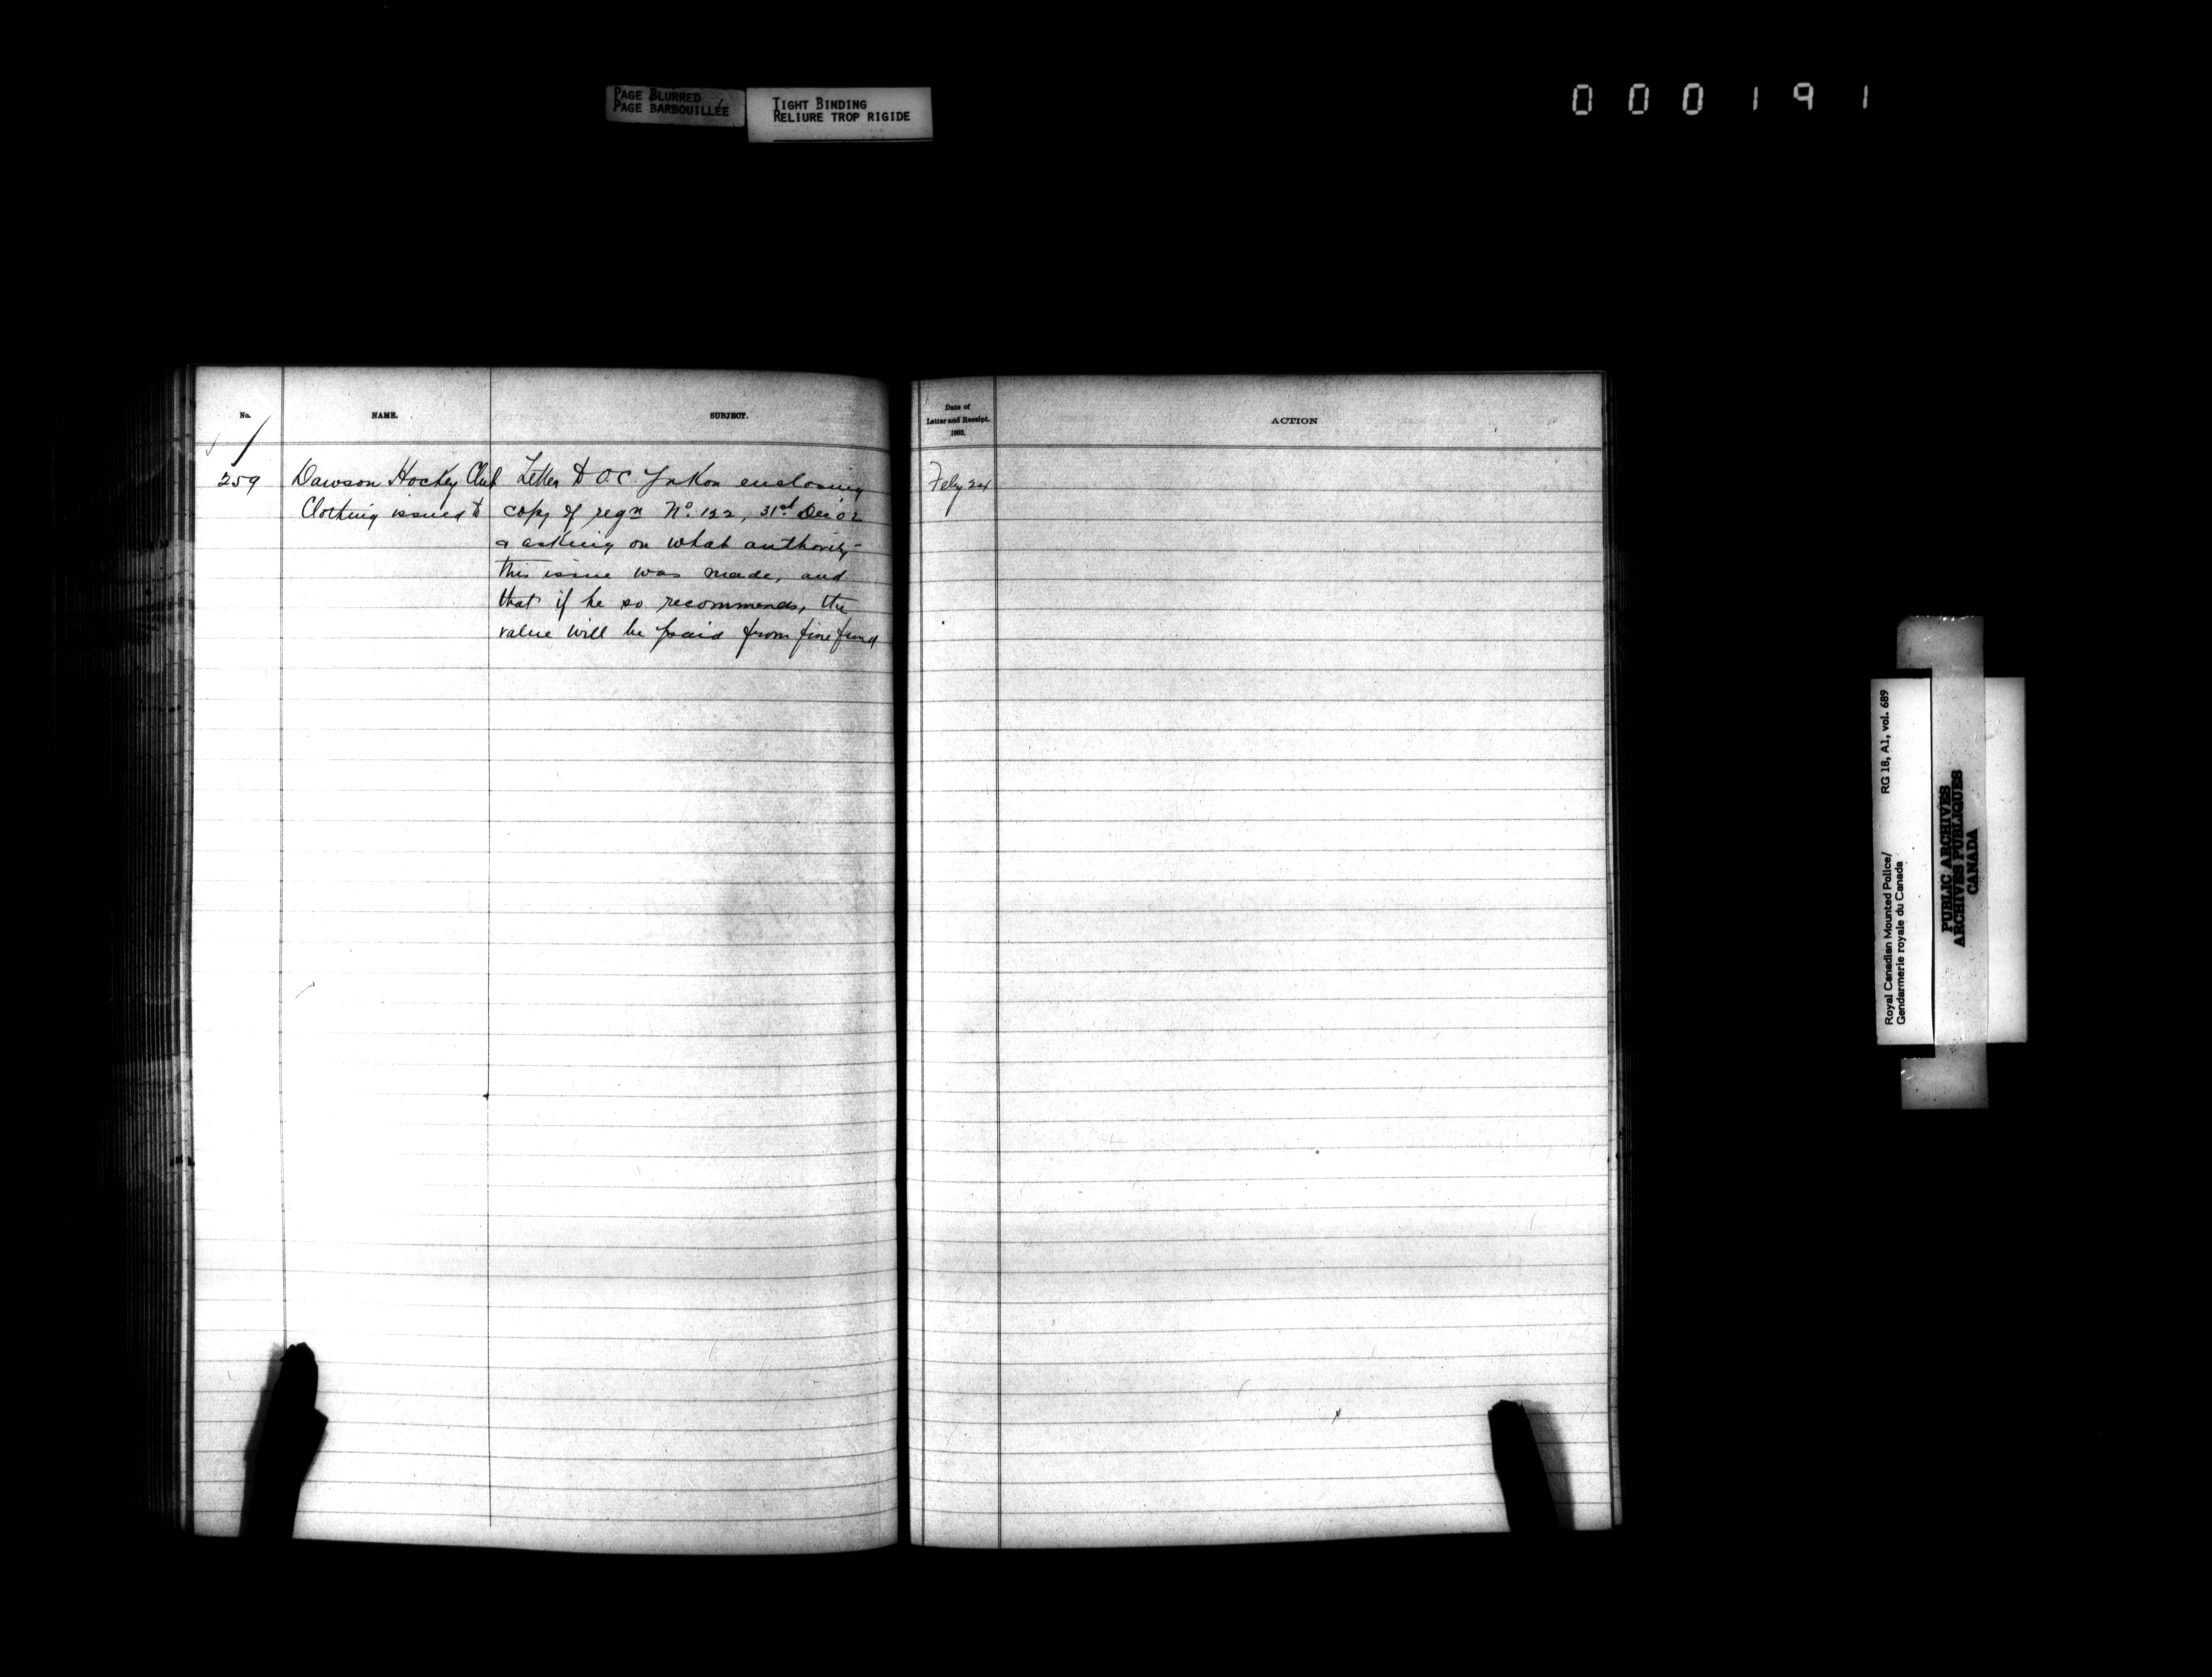 PAGE BLURRED
PAGE BARBOUILLÉE
TIGHT BINDING
RELIURE TROP RIGIDE
000191
No.
NAME.
SUBJECT.
Date of
Letter and Receipt.
1903.
ACTION
259
Dawson Hockey Club
Clothing issued to
Letter to O.C. Yukon enclosing
copy of reqn No. 122, 31st Dec 02
& asking on what authority
this issue was made, and
that if he so recommends, the
value will be paid from fine fund
Feby 24
Royal Canadian Mounted Police/
Gendarmerie royale du Canada
RG 18, A1, vol. 689
PUBLIC ARCHIVES
ARCHIVES PUBLIQUES
CANADA